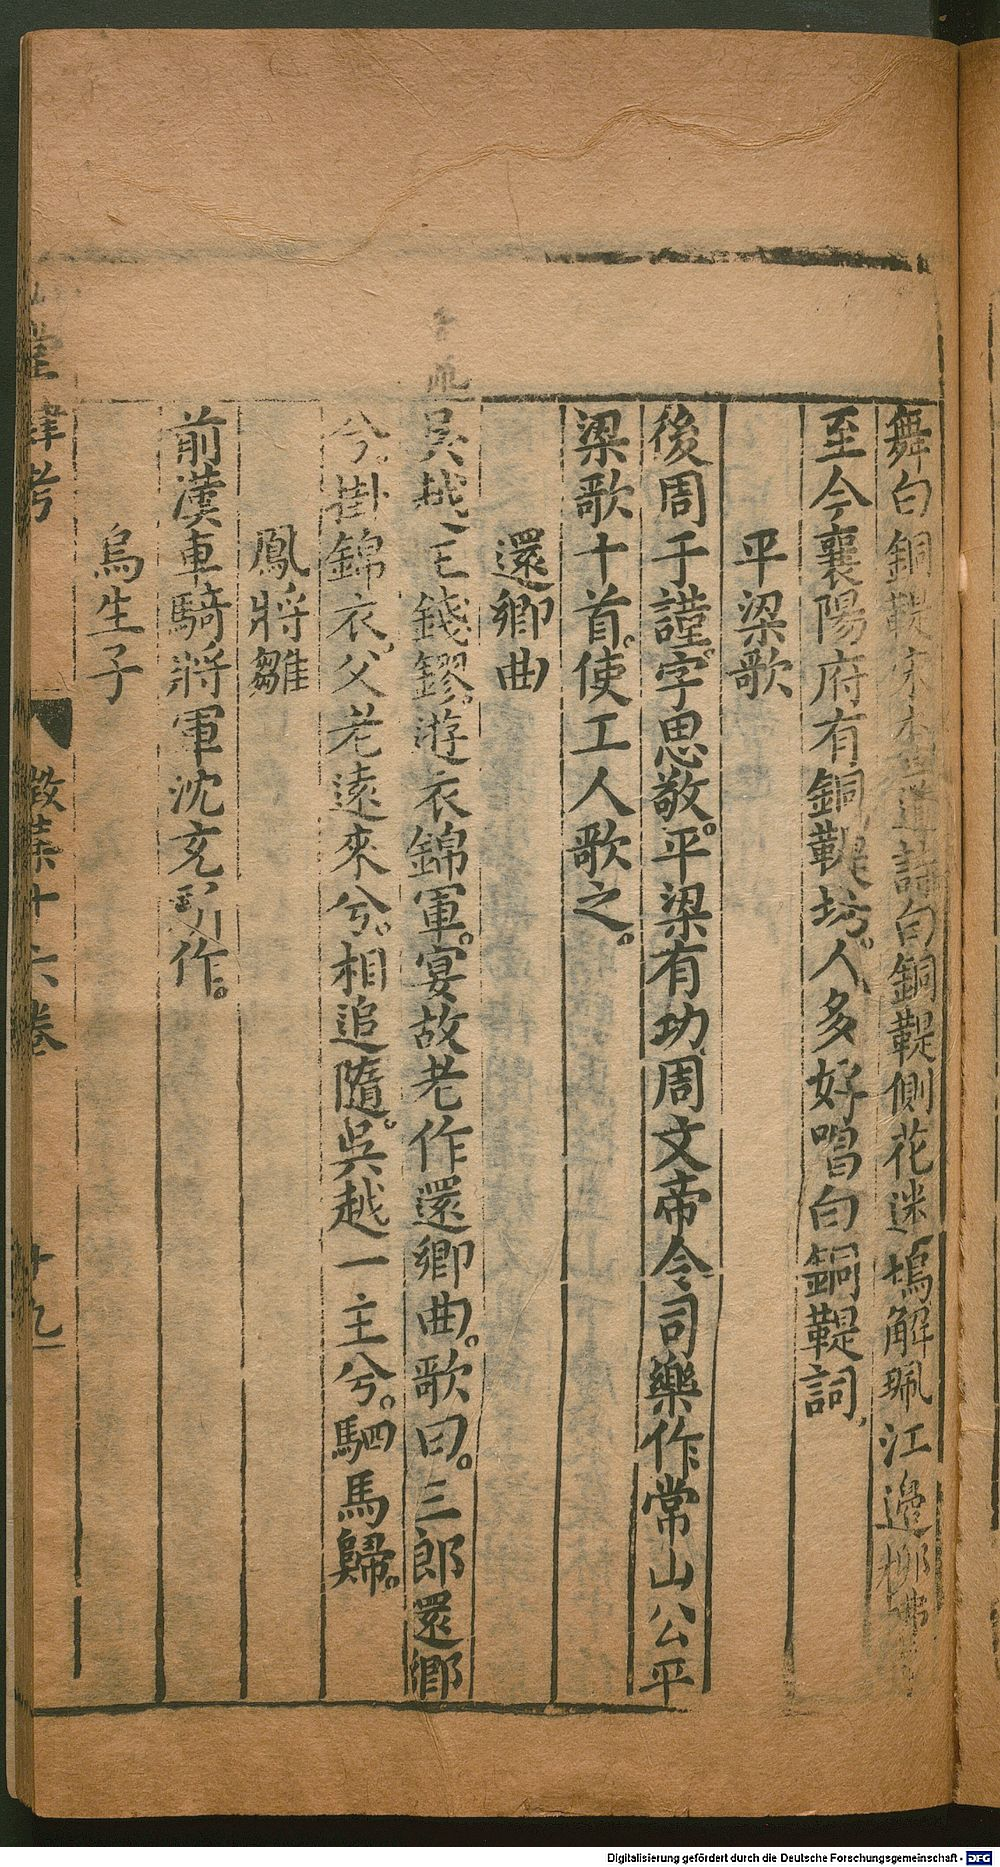 舞白銅鞮宋本詩白銅鞮側花迷塢解珮江邉柳拂
至今襄陽府有銅鞮坊。人多好唱白銅鞮詞
平梁歌
後周于謹。字思敬。平梁有功。周文帝令司樂作常山公平
梁歌十首。使工人歌之。
還鄉曲
吳越王錢鏐。遊衣錦軍。宴故老作還鄉曲。歌曰。三郎還鄉
兮。掛錦衣。父老遠來兮。相追隨。吳越一主兮。駟馬歸。
鳳將雛
前漢車騎將軍沈充作。
烏生子
堂肆考 徵集十六卷 十九
Digitalisierung gefördert durch die Deutsche Forschungsgemeinschaft - DFG